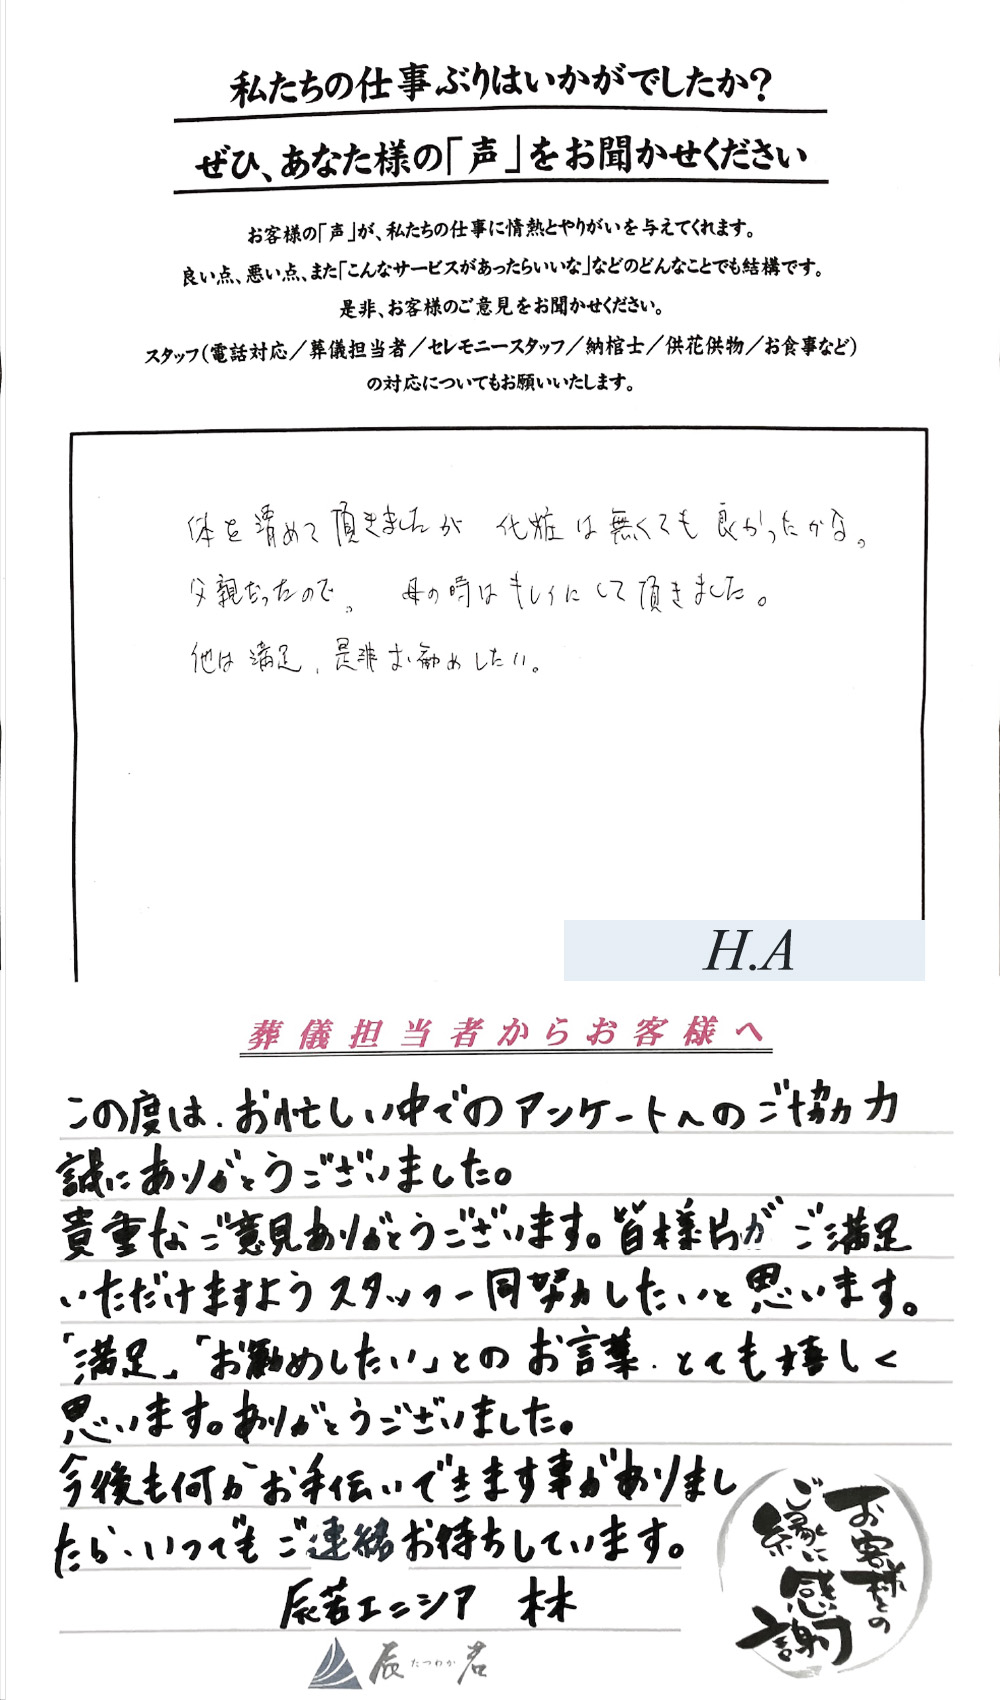 私たちの仕事ぶりはいかがでしたか?
ぜひ、あなた様の「声」をお聞かせください
お客様の「声」が、私たちの仕事に情熱とやりがいを与えてくれます。
良い点、悪い点、また「こんなサービスがあったらいいな」などのどんなことでも結構です。
是非、お客様のご意見をお聞かせください。
スタッフ(電話対応／葬儀担当者／セレモニースタッフ／納棺士／供花供物／お食事など)
の対応についてもお願いいたします。
体を清めて頂きましたが 化粧は無くても良かったかな。
父親だったので。 母の時はキレイにして頂きました。
他は満足、是非お勧めしたい。
H.A
葬儀担当者からお客様へ
この度は、お忙しい中でのアンケートへのご協力
誠にありがとうございました。
貴重なご意見ありがとうございます。皆様方がご満足
いただけますようスタッフ一同努力したいと思います。
「満足」「お勧めしたい」とのお言葉、とても嬉しく
思います。ありがとうございました。
今後も何かお手伝いできます事がありまし
たら、いつでもご連絡お待ちしています。
辰若エニシア 林
お客様との
ご縁に
感謝
辰たつわか若